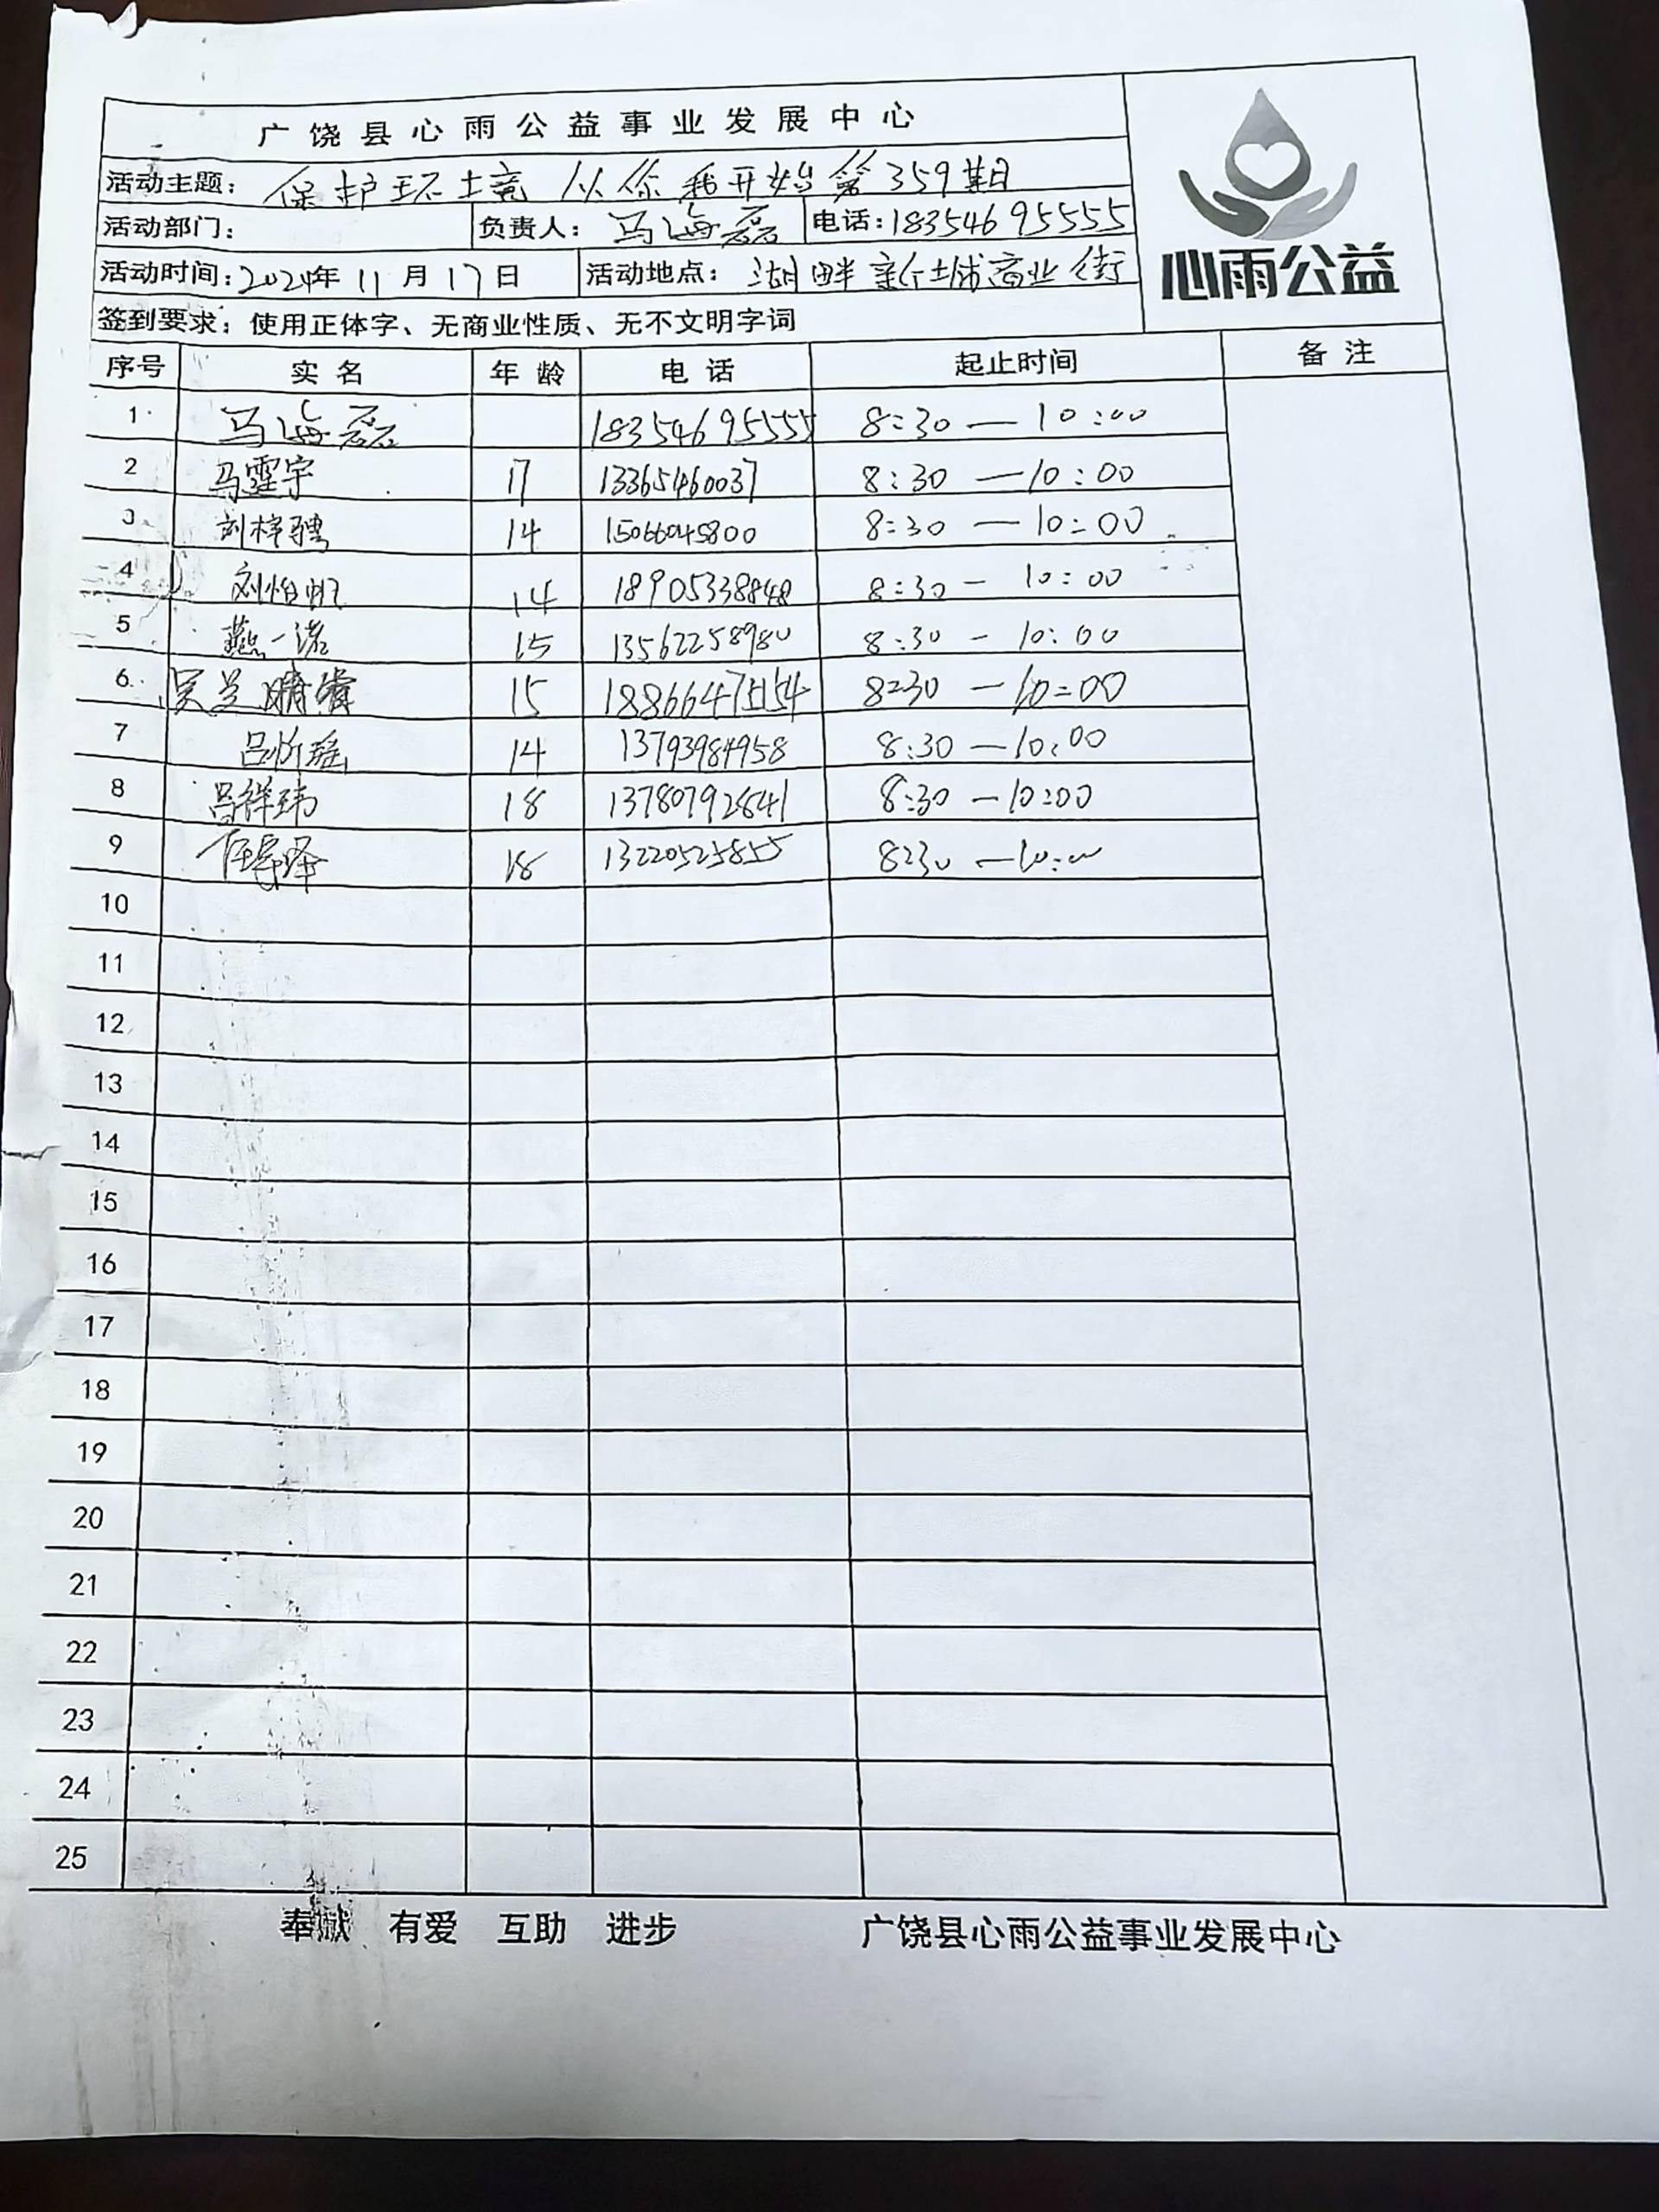 广饶县心雨公益事业发展中心
活动主题：保护环境 从你我开始第359期
活动部门： 负责人：马海磊 电话：18354695555
活动时间：2024年11月17日 活动地点：湖畔新城商业街
心雨公益
签到要求：使用正体字、无商业性质、无不文明字词
序号 实名 年龄 电话 起止时间 备注
1 马海磊 18354695555 8:30—10:00
2 马霆宇 17 13365460037 8:30—10:00
3 刘梓骋 14 15066045800 8:30—10:00
4 刘怡帆 14 18905338848 8:30-10:00
5 燕一诺 15 13562258980 8:30-10:00
6 吴兰 15 18866475154 8:30—10:00
7 吕忻瑶 14 13793984958 8:30—10:00
8 吕祥玮 18 13780792841 8:30—10:00
9 18 13220525855 8:30—10:00
10
11
12
13
14
15
16
17
18
19
20
21
22
23
24
25
奉献 有爱 互助 进步 广饶县心雨公益事业发展中心